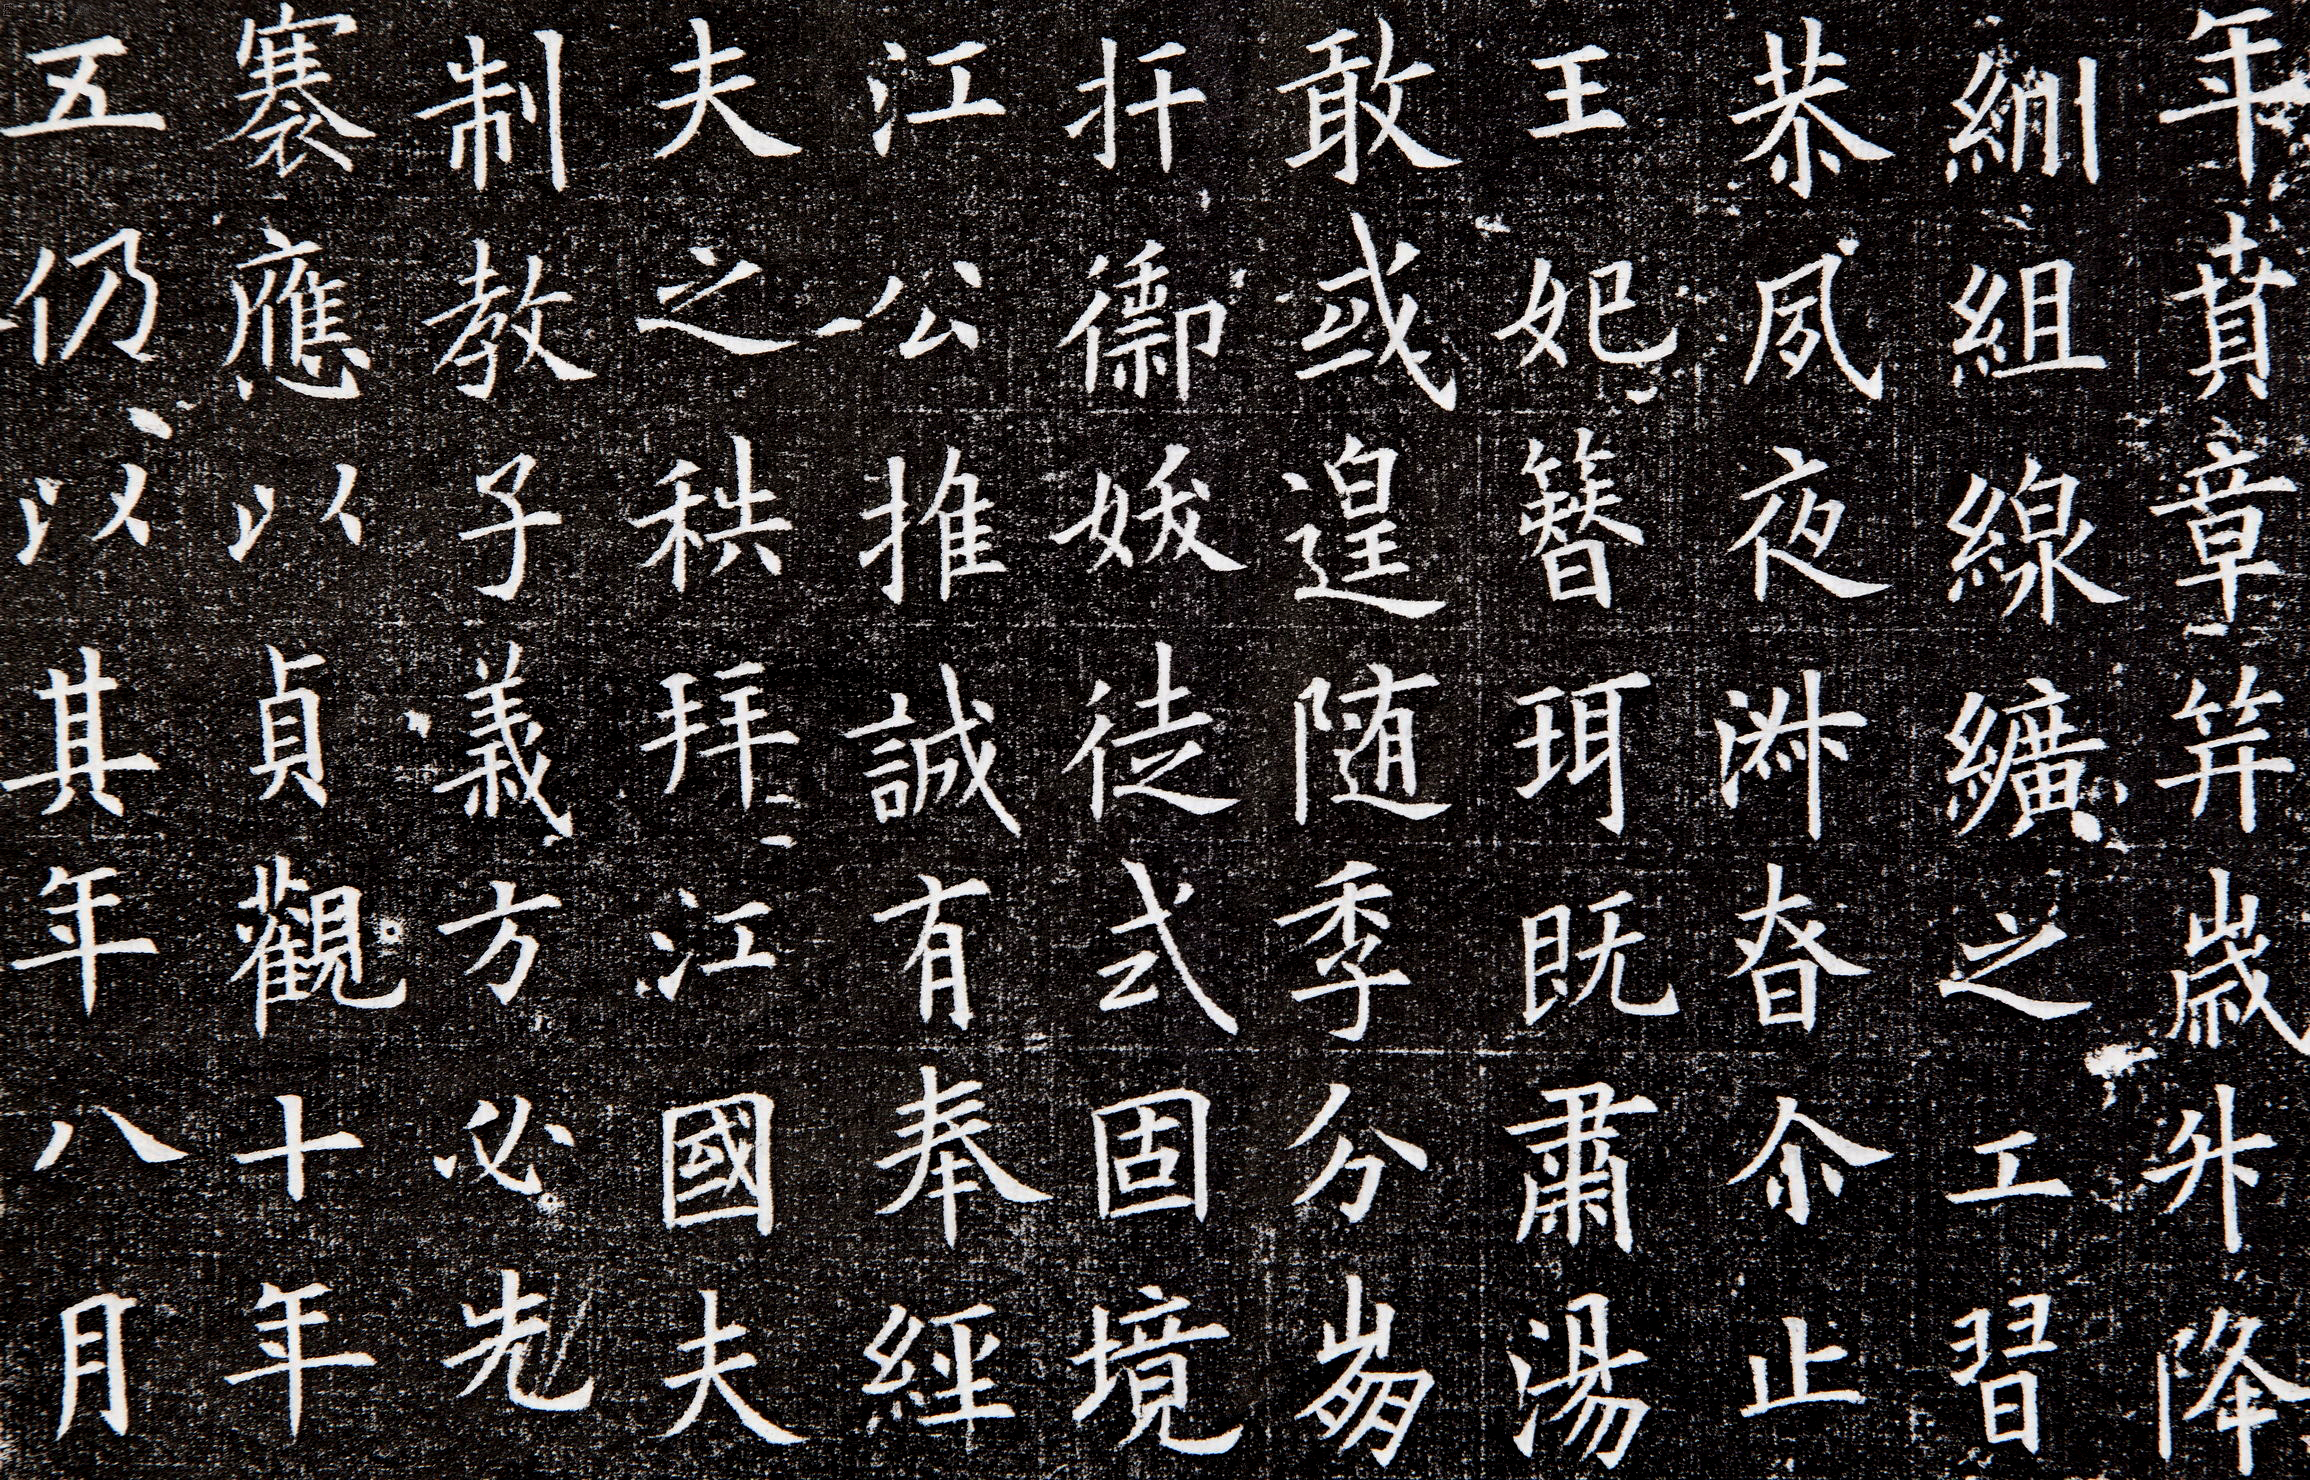 年蕡章笄歲升降
紃組線纊之工習
恭夙夜淑昚尒止
王妃簪珥既肅湯
敢或遑随季分崩
扞禦妭徒式固境
江公推誠有奉經
夫之秩拜江國夫
制教子義方必先
褰應以貞觀十年
五仍以其年八月